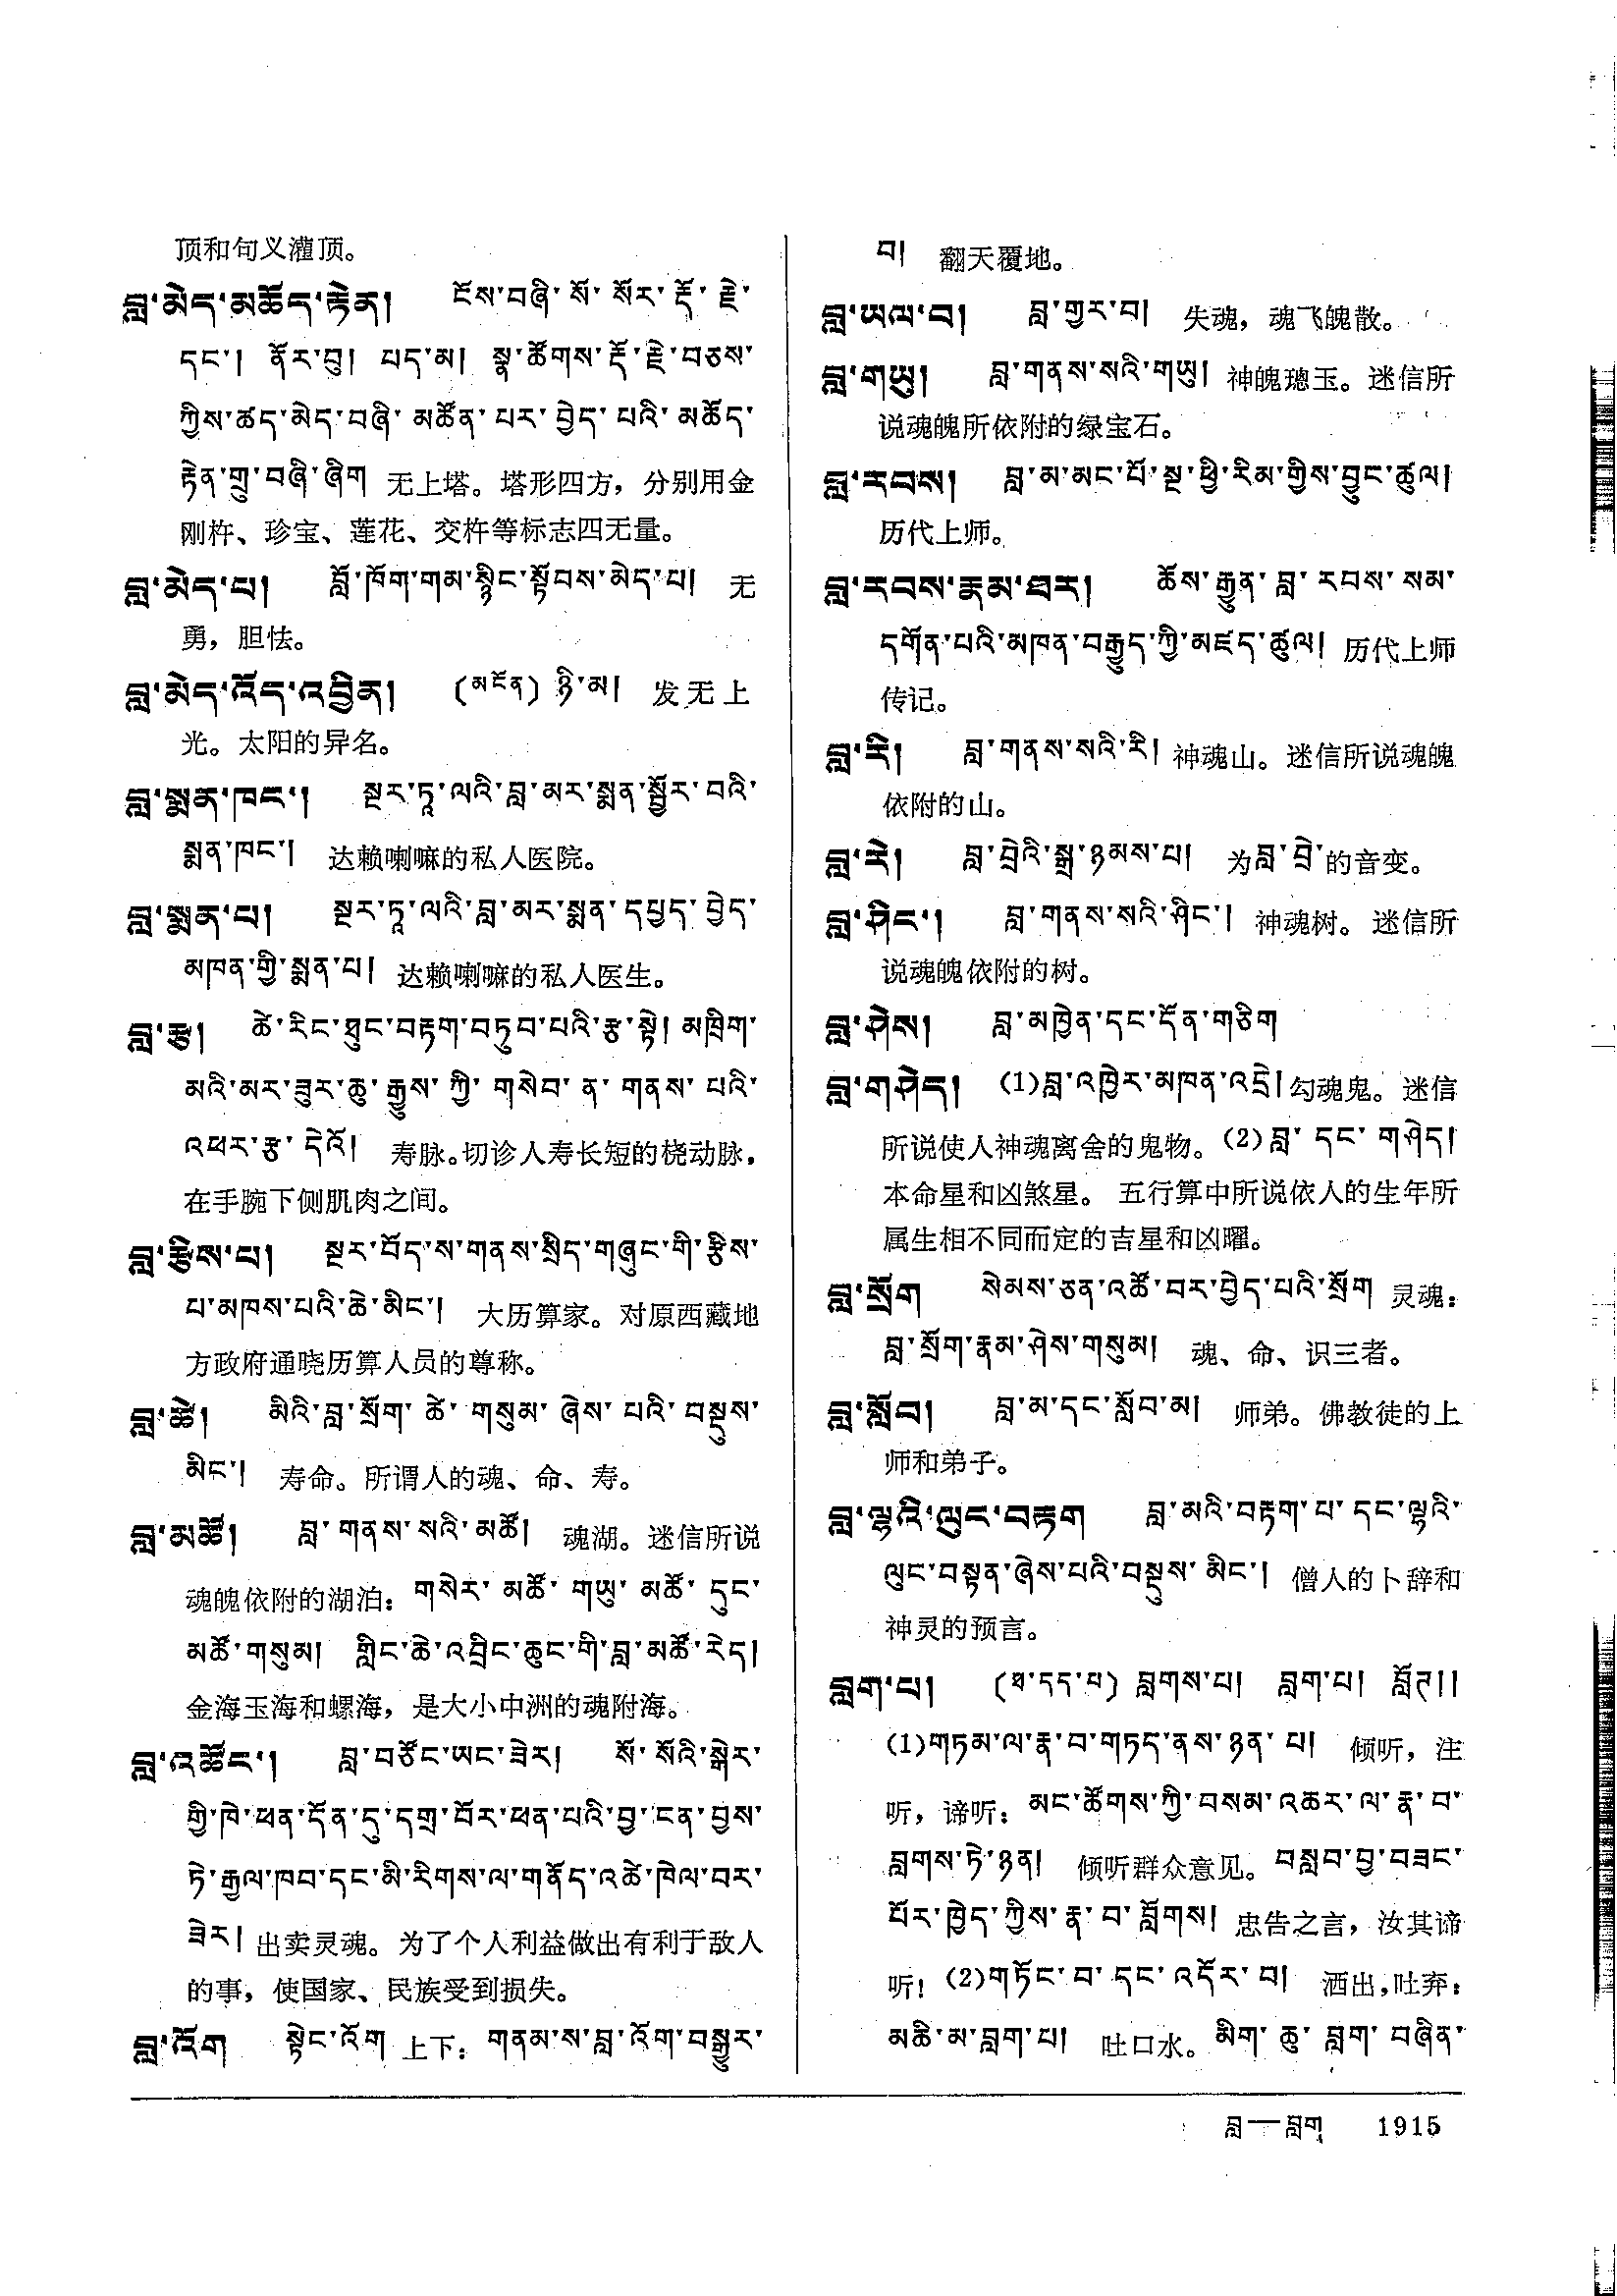 顶和句义灌顶。
བླ་མེད་མཆོད་རྟེན། ངོས་བཞི་སོ་སོར་རྡོ་རྗེ་
དང་། ནོར་བུ། པད་མ། སྣ་ཚོགས་རྡོ་རྗེ་བཅས་
ཀྱིས་ཚད་མེད་བཞི་མཚོན་པར་བྱེད་པའི་མཆོད་
རྟེན་གྲུ་བཞི་ཞིག 无上塔。塔形四方，分别用金
刚杵、珍宝、莲花、交杵等标志四无量。
བླ་མེད་པ། བློ་ཁོག་གམ་སྙིང་སྟོབས་མེད་པ། 无
勇，胆怯。
བླ་མེད་འོད་འབྱིན། (མངོན) ཉི་མ། 发无上
光。太阳的异名。
བླ་སྨན་ཁང་། སྔར་ཏཱ་ལའི་བླ་མར་སྨན་སྦྱོར་བའི་
སྨན་ཁང་། 达赖喇嘛的私人医院。
བླ་སྨན་པ། སྔར་ཏཱ་ལའི་བླ་མར་སྨན་དཔྱད་བྱེད་
མཁན་གྱི་སྨན་པ། 达赖喇嘛的私人医生。
བླ་རྩ། ཚེ་རིང་ཐུང་བརྟག་བཏུབ་པའི་རྩ་སྟེ། མཁྲིག་
མའི་མར་ཟུར་ཆུ་རྒྱུས་ཀྱི་གསེབ་ན་གནས་པའི་
འཕར་རྩ་དེའོ། 寿脉。切诊人寿长短的桡动脉，
在手腕下侧肌肉之间。
བླ་རྩིས་པ། སྔར་བོད་ས་གནས་སྲིད་གཞུང་གི་རྩིས་
པ་མཁས་པའི་ཆེ་མིང་། 大历算家。对原西藏地
方政府通晓历算人员的尊称。
བླ་ཚེ། མིའི་བླ་སྲོག་ཚེ་གསུམ་ཞེས་པའི་བསྡུས་
མིང་། 寿命。所谓人的魂、命、寿。
བླ་མཚོ། བླ་གནས་སའི་མཚོ། 魂湖。迷信所说
魂魄依附的湖泊：གསེར་མཚོ་གཡུ་མཚོ་དུང་
མཚོ་གསུམ། གླིང་ཆེ་འབྲིང་ཆུང་གི་བླ་མཚོ་རེད།
金海玉海和螺海，是大小中洲的魂附海。
བླ་འཚོང་། བླ་བཙོང་ཡང་ཟེར། སོ་སོའི་སྒེར་
གྱི་ཁེ་ཕན་དོན་དུ་དགྲ་བོར་ཕན་པའི་བྱ་ངན་བྱས་
ཏེ་རྒྱལ་ཁབ་དང་མི་རིགས་ལ་གནོད་འཚེ་ཁེལ་བར་
ཟེར། 出卖灵魂。为了个人利益做出有利于敌人
的事，使国家、民族受到损失。
བླ་འོག སྟེང་འོག 上下：གནམ་ས་བླ་འོག་བསྒྱུར་
བ། 翻天覆地。
བླ་ཡལ་བ། བླ་གྱར་བ། 失魂，魂飞魄散。
བླ་གཡུ། བླ་གནས་སའི་གཡུ། 神魄璁玉。迷信所
说魂魄所依附的绿宝石。
བླ་རབས། བླ་མ་མང་པོ་སྔ་ཕྱི་རིམ་གྱིས་བྱུང་ཚུལ།
历代上师。
བླ་རབས་རྣམ་ཐར། ཆོས་རྒྱུན་བླ་རབས་སམ་
དགོན་པའི་མཁན་བརྒྱུད་ཀྱི་མཛད་ཚུལ། 历代上师
传记。
བླ་རི། བླ་གནས་སའི་རི། 神魂山。迷信所说魂魄
依附的山。
བླ་རེ། བླ་བྲེའི་སྒྲ་ཉམས་པ། 为བླ་བྲེ་的音变。
བླ་ཤིང་། བླ་གནས་སའི་ཤིང་། 神魂树。迷信所
说魂魄依附的树。
བླ་ཤེས། བླ་མཁྱེན་དང་དོན་གཅིག
བླ་གཤེད། (1)བླ་འཁྱེར་མཁན་འདྲེ། 勾魂鬼。迷信
所说使人神魂离舍的鬼物。(2)བླ་དང་གཤེད།
本命星和凶煞星。五行算中所说依人的生年所
属生相不同而定的吉星和凶曜。
བླ་སྲོག སེམས་ཅན་འཚོ་བར་བྱེད་པའི་སྲོག 灵魂：
བླ་སྲོག་རྣམ་ཤེས་གསུམ། 魂、命、识三者。
བླ་སློབ། བླ་མ་དང་སློབ་མ། 师弟。佛教徒的上
师和弟子。
བླ་ལྷའི་ལུང་བརྟག བླ་མའི་བརྟག་པ་དང་ལྷའི་
ལུང་བསྟན་ཞེས་པའི་བསྡུས་མིང་། 僧人的卜辞和
神灵的预言。
བླག་པ། (ཐ་དད་པ) བླགས་པ། བླག་པ། བློཊ།།
(1)གཏམ་ལ་རྣ་བ་གཏད་ནས་ཉན་པ། 倾听，注
听，谛听：མང་ཚོགས་ཀྱི་བསམ་འཆར་ལ་རྣ་བ་
བླགས་ཏེ་ཉན། 倾听群众意见。བསླབ་བྱ་བཟང་
པོར་ཁྱེད་ཀྱིས་རྣ་བ་བློགས། 忠告之言，汝其谛
听！(2)གཏོང་བ་དང་འདོར་བ། 洒出，吐弃：
མཆི་མ་བླག་པ། 吐口水。མིག་ཆུ་བླག་བཞིན་
བླ—བླག 1915